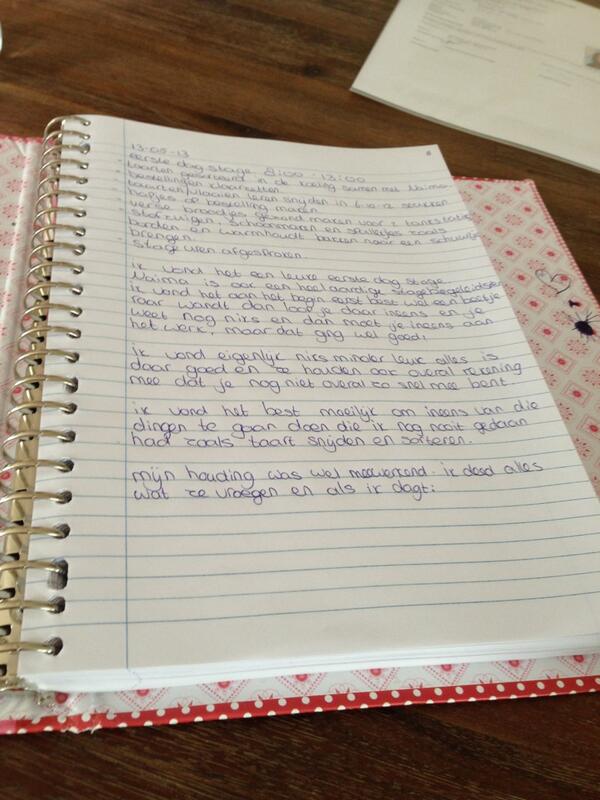 13-05-13
eerste dag stage 8:00 - 13:00
- taarten gesorteerd in de koeling samen met Naima
- bestellingen klaarzetten
- taarten/vlaaien leren snijden in 6-10-12 stukken
- hapjes op bestelling maken
- verse broodjes gezond maken voor 2 tankstations
- stofzuigen, schoonmaken en spulletjes zoals
borden en warmhoudt bakken naar een schuurtje
brengen.
- stage uren afgesproken.
ik vond het een leuke eerste dag stage
Naima is ook een heel aardige stagebegeleidster
ik vond het aan het begin eerst best wel een beetje
raar wandt dan loop je daar ineens en je
weet nog niks en dan moet je ineens aan
het werk, maar dat ging wel goed!
ik vond eigenlijk niks minder leuk alles is
daar goed en ze houden ook overal rekening
mee dat je nog niet overal zo snel mee bent.
ik vond het best moeilijk om ineens van die
dingen te gaan doen die ik nog nooit gedaan
had zoals taart snijden en sorteren.
mijn houding was wel meewerkend. ik deed alles
wat ze vroegen en als ik dagt: